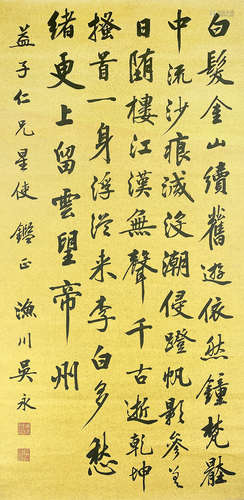 白髮金山續舊遊依然鐘梵
中流沙痕滅沒潮侵蹬帆影參差
日随樓江漢無聲千古逝乾坤
搔首一身浮從来李白多愁
緒更上留雲望帝州
益子仁兄星使鑑正 漁川吳永